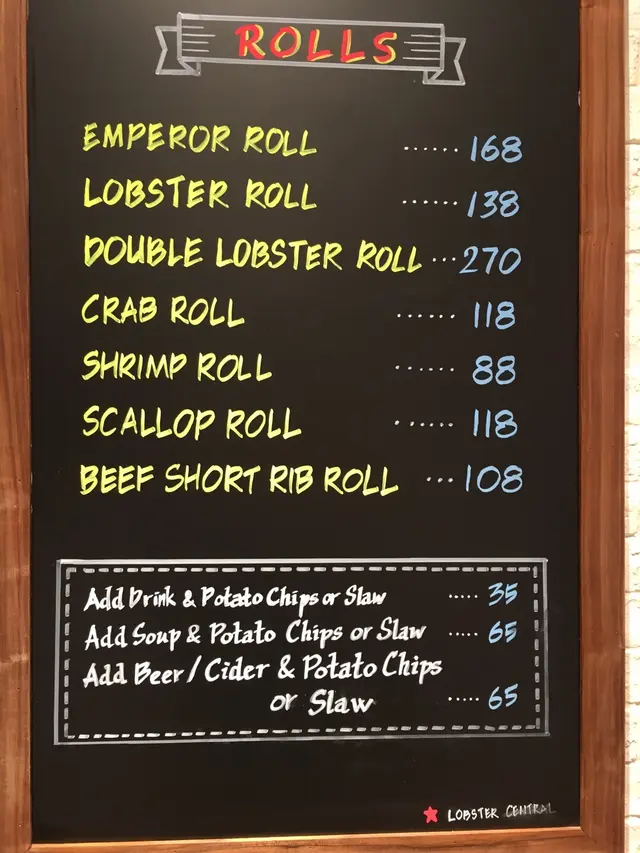 ROLLS
EMPEROR ROLL ...... 168
LOBSTER ROLL ...... 138
DOUBLE LOBSTER ROLL ... 270
CRAB ROLL ...... 118
SHRIMP ROLL ...... 88
SCALLOP ROLL ...... 118
BEEF SHORT RIB ROLL ... 108
Add Drink & Potato Chips or Slaw ..... 35
Add Soup & Potato Chips or Slaw ..... 65
Add Beer / Cider & Potato Chips
or Slaw ..... 65
LOBSTER CENTRAL